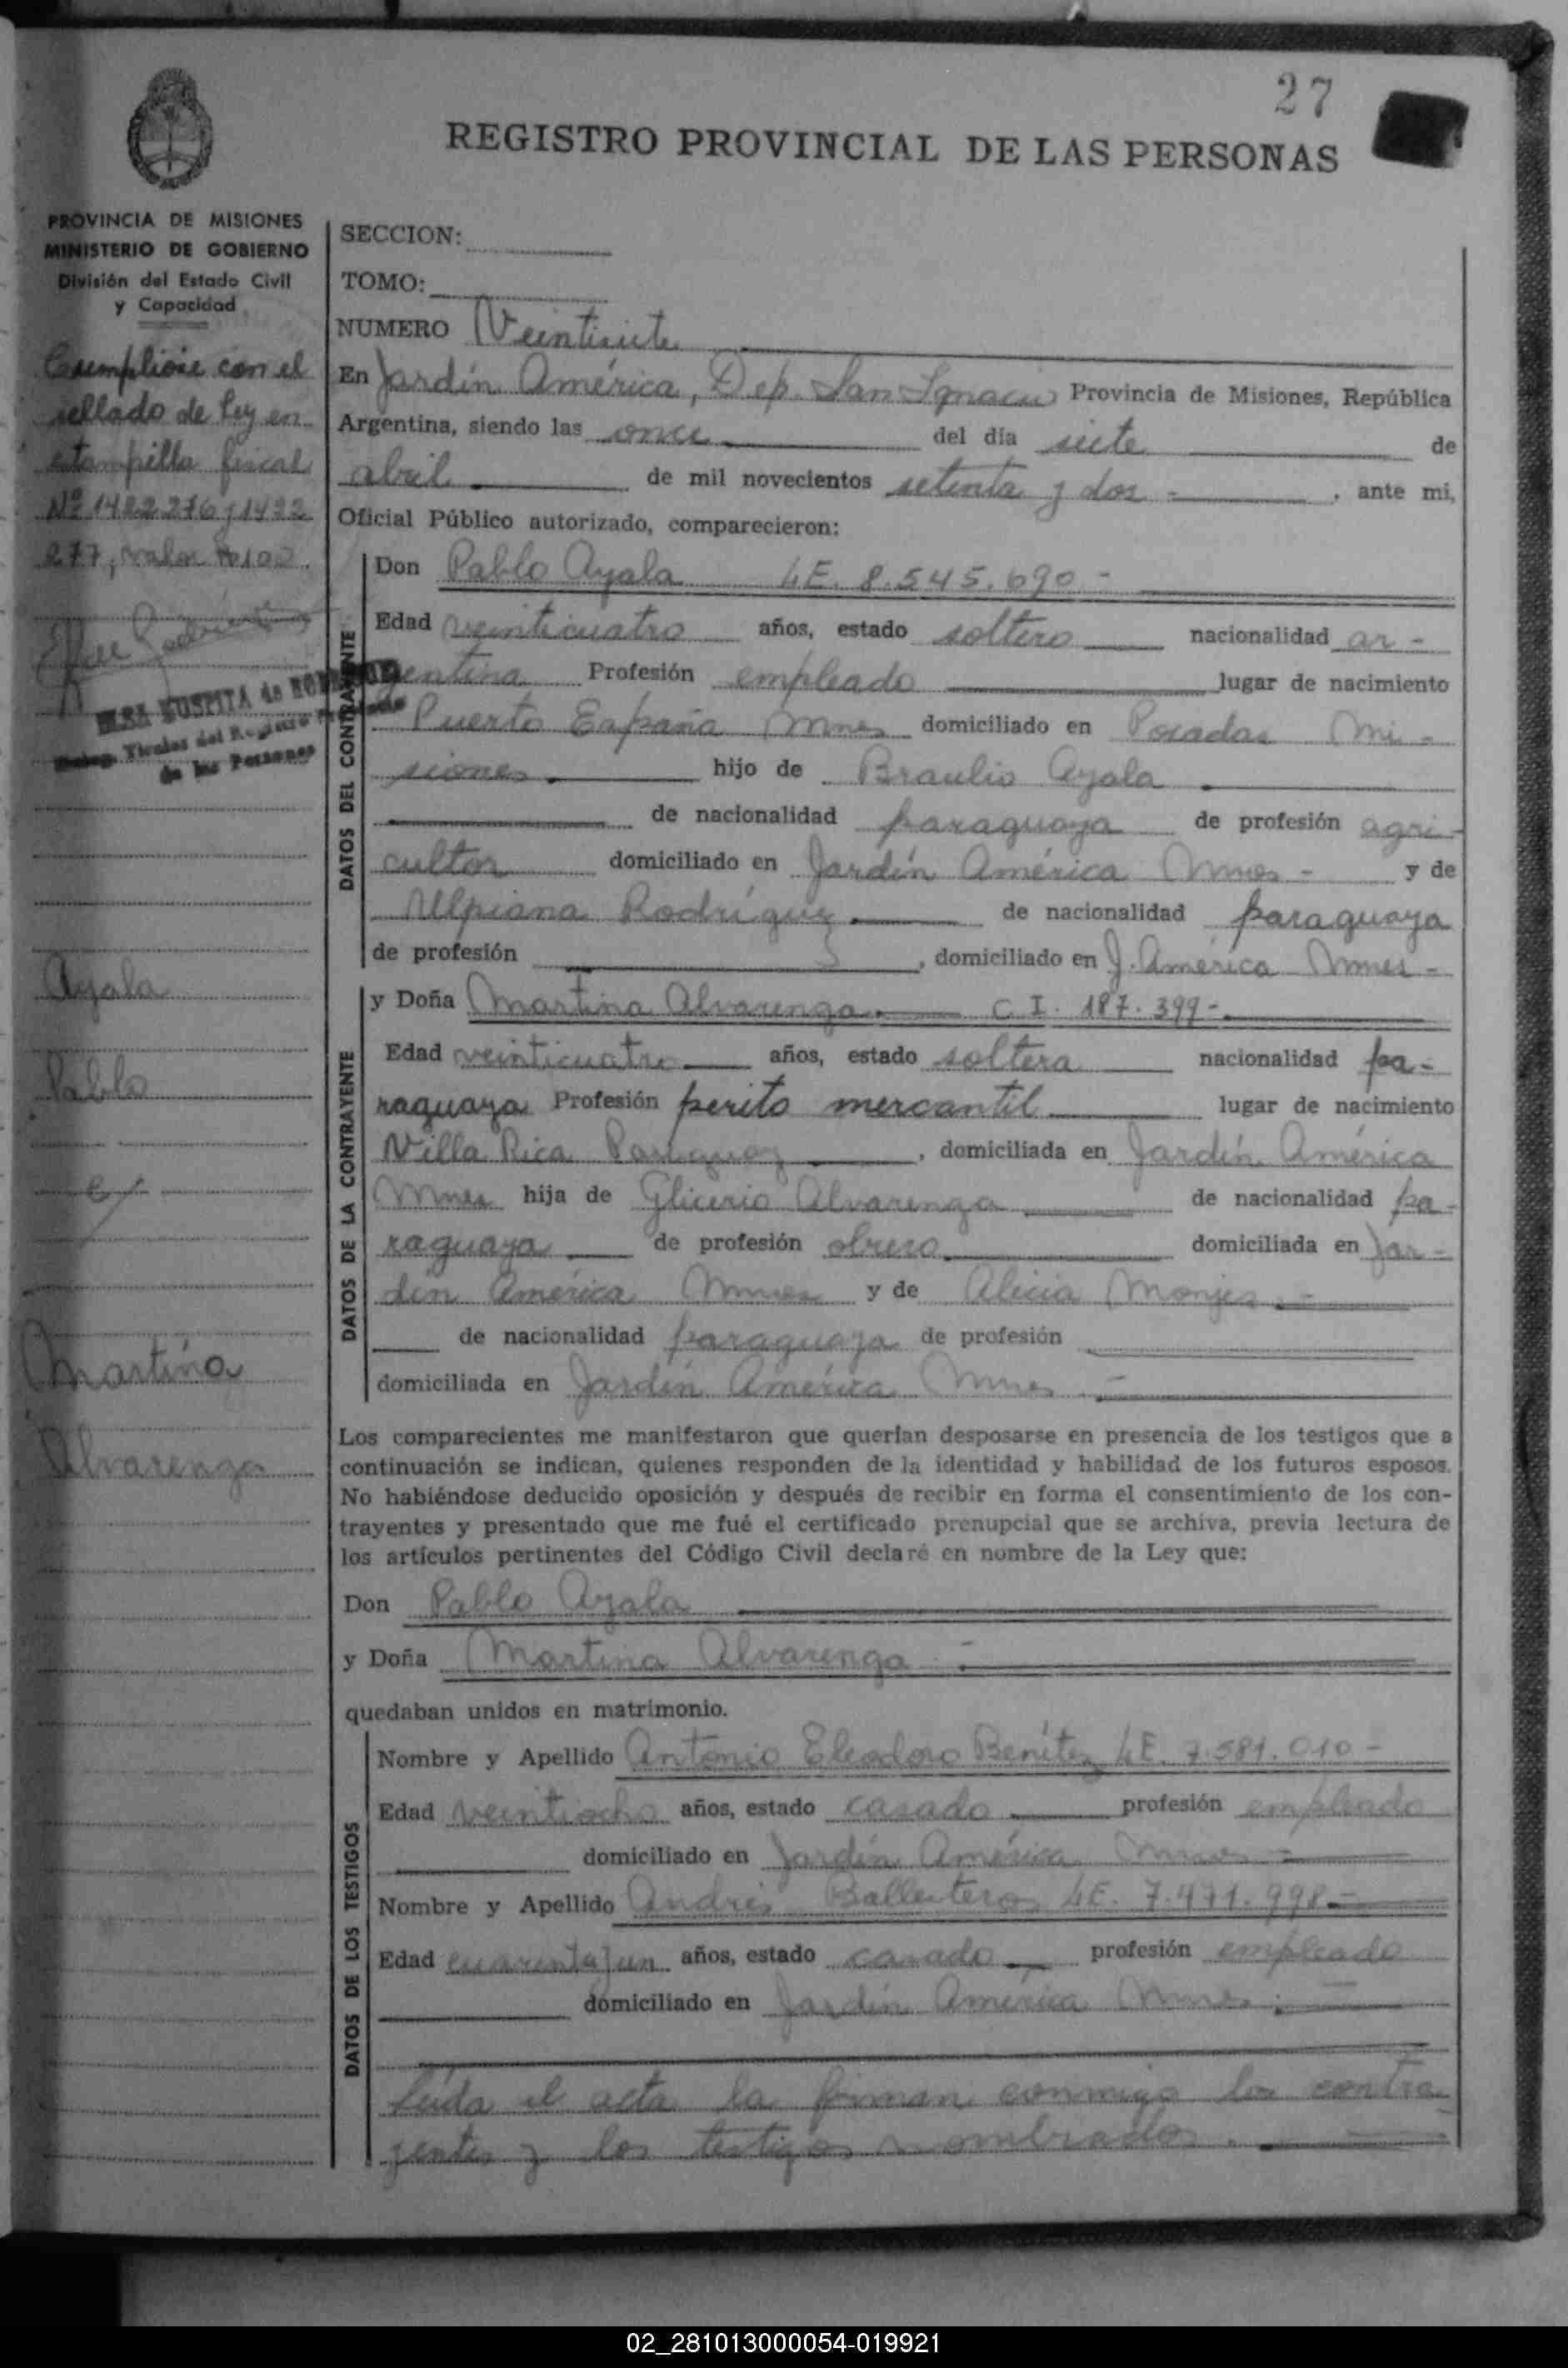 27
REGISTRO PROVINCIAL DE LAS PERSONAS
PROVINCIA DE MISIONES
MINISTERIO DE GOBIERNO
División del Estado Civil
y Capacidad
con el
sellado de Ley en
estampilla fiscal
Nº 1422276 y 1422
277, valor $100.
ELSA KUSPITA de
Titular del Registro Provincial
de las Personas
Ayala
Pablo
c/
Martina
Alvarenga
SECCION:
TOMO:
NUMERO Veintisiete
En Jardín América, Dep. San Ignacio Provincia de Misiones, República
Argentina, siendo las once del día siete de
abril de mil novecientos setenta y dos - , ante mi,
Oficial Público autorizado, comparecieron:
DATOS DEL CONTRAYENTE
Don Pablo Ayala L.E. 8.545.690 -
Edad veinticuatro años, estado soltero nacionalidad ar-
gentina Profesión empleado lugar de nacimiento
Puerto España Mnes domiciliado en Posadas Mi-
siones hijo de Braulio Ayala
de nacionalidad paraguaya de profesión agri-
cultor domiciliado en Jardín América Mnes - y de
Ulpiana Rodríguez de nacionalidad paraguaya
de profesión , domiciliado en J. América Mnes -
DATOS DE LA CONTRAYENTE
y Doña Martina Alvarenga C I. 187.399 -
Edad veinticuatro años, estado soltera nacionalidad pa-
raguaya Profesión perito mercantil lugar de nacimiento
Villa Rica Paraguay , domiciliada en Jardín América
Mnes hija de Glicerio Alvarenga de nacionalidad pa-
raguaya de profesión obrero domiciliada en Jar-
dín América Mnes y de Alicia Monges
de nacionalidad paraguaya de profesión
domiciliada en Jardín América Mnes -
Los comparecientes me manifestaron que querían desposarse en presencia de los testigos que a
continuación se indican, quienes responden de la identidad y habilidad de los futuros esposos.
No habiéndose deducido oposición y después de recibir en forma el consentimiento de los con-
trayentes y presentado que me fué el certificado prenupcial que se archiva, previa lectura de
los artículos pertinentes del Código Civil declaré en nombre de la Ley que:
Don Pablo Ayala
y Doña Martina Alvarenga -
quedaban unidos en matrimonio.
DATOS DE LOS TESTIGOS
Nombre y Apellido Antonio Eleodoro Benítez L.E. 7.581.010 -
Edad veintiocho años, estado casado profesión empleado
domiciliado en Jardín América Mnes -
Nombre y Apellido Andrés Ballesteros L.E. 7.471.998 -
Edad cuarenta y un años, estado casado profesión empleado
domiciliado en Jardín América Mnes
Leída el acta la firman conmigo los contra-
yentes y los testigos nombrados.
02_281013000054-019921